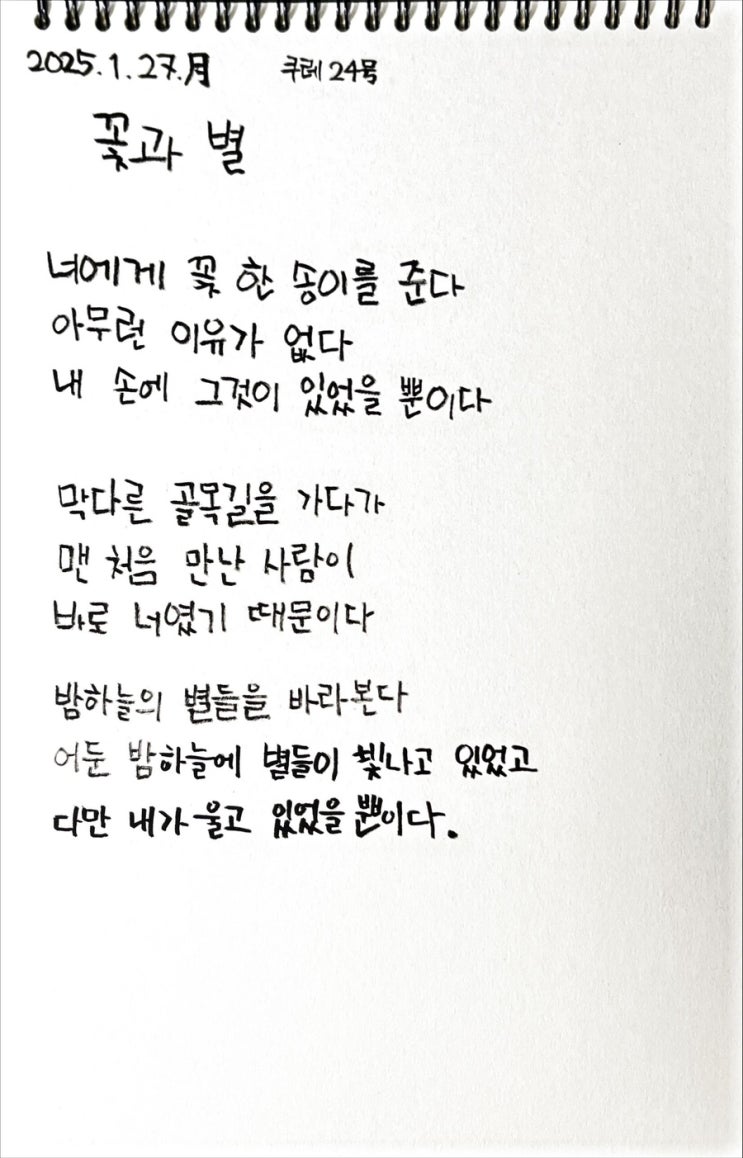 2025.1.27.月 쿠레 24号
꽃과 별
너에게 꽃 한 송이를 준다
아무런 이유가 없다
내 손에 그것이 있었을 뿐이다
막다른 골목길을 가다가
맨 처음 만난 사람이
바로 너였기 때문이다
밤하늘의 별들을 바라본다
어둔 밤하늘에 별들이 빛나고 있었고
다만 내가 울고 있었을 뿐이다.